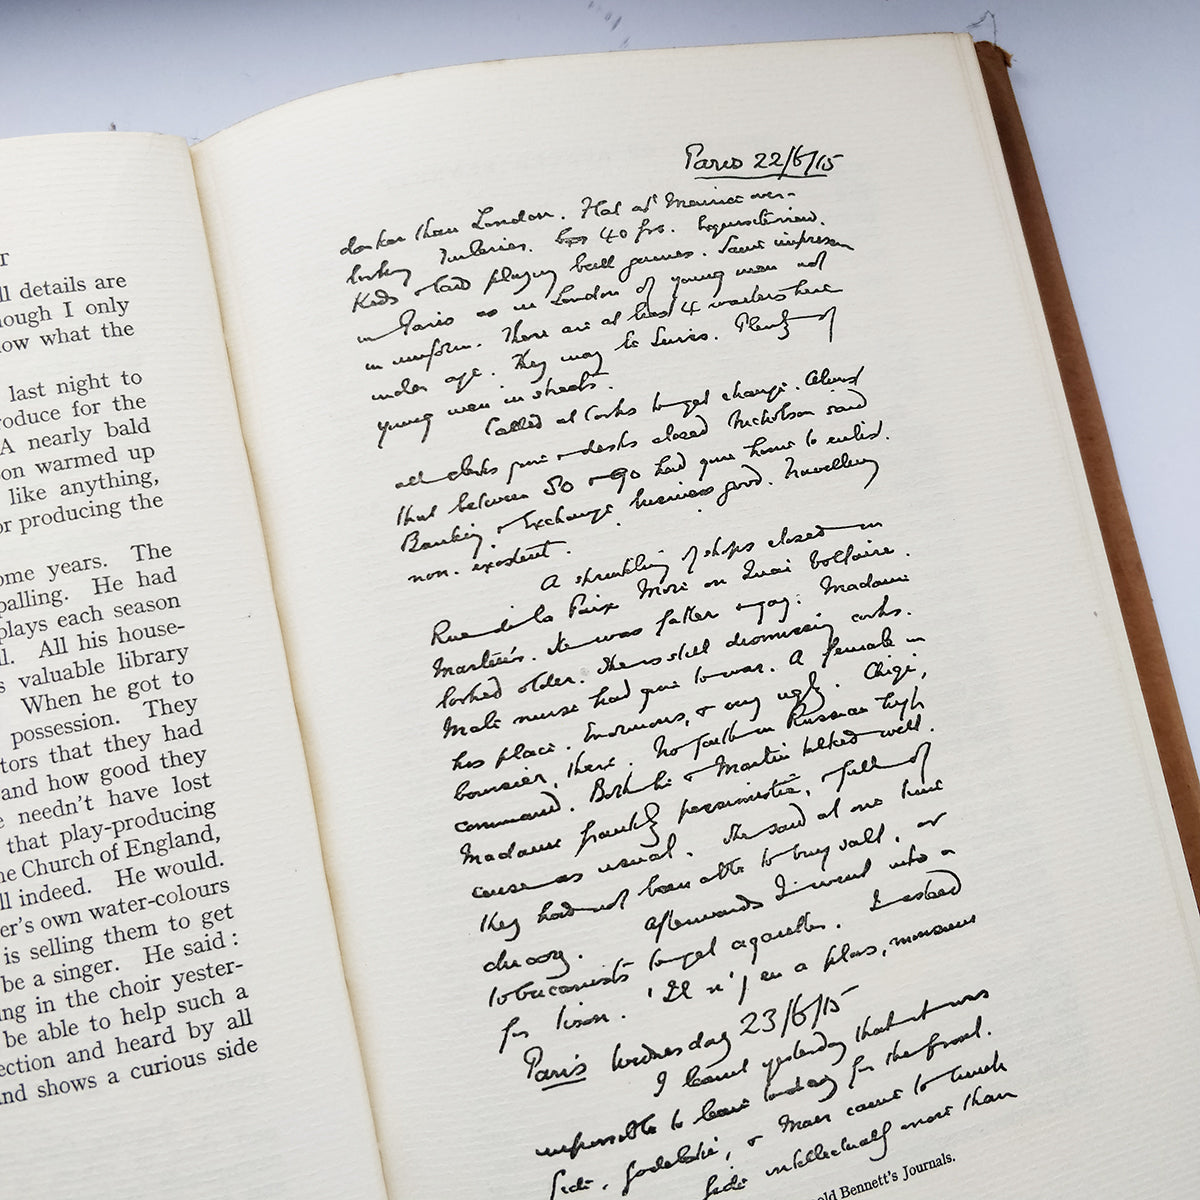 T
ll details are
hough I only
now what the
last night to
roduce for the
A nearly bald
on warmed up
like anything,
or producing the
ome years. The
palling. He had
plays each season
ll. All his house-
s valuable library
When he got to
possession. They
tors that they had
and how good they
e needn't have lost
that play-producing
he Church of England,
ll indeed. He would.
er's own water-colours
is selling them to get
be a singer. He said :
ng in the choir yester-
be able to help such a
ection and heard by all
and shows a curious side
Paris 22/6/15
darker than London. Flat at Meurice over-
looking Tuileries. 40 frs. Exquisite view.
Kids & lads playing ball games. Same impression
in Paris as in London of young men not
in uniform. There are at least 4 waiters here
under age. They may be Swiss. Plenty of
young men in streets.
Called at Cooks to get change. Almost
all clerks gone & desks closed Nicholson said
that between 80 & 90 had gone home to enlist.
Banking & Exchange business good. Travelling
non-existent.
A sprinkling of shops closed in
Rue de la Paix More on Quai Voltaire.
Martin's. He was fatter & gay. Madame
looked older. She is still dismissing cooks.
Male nurse had gone to war. A female in
his place. Enormous, & very ugly. Chigi,
boursier, there. No faith in Russian high
command. Both he & Martin talked well.
Madame frankly pessimistic, & full of
cause as usual. She said at one time
they had not been able to buy salt, or
chicory. Afterwards I went into a
tobacconist's to get cigarettes. I asked
for . 'Il n'y en a plus, monsieur
Paris Wednesday 23/6/15
I learnt yesterday that it was
impossible to leave today for the front.
Gide, Godebski, & Mair came to lunch
Gide intellectually more than
old Bennett's Journals.